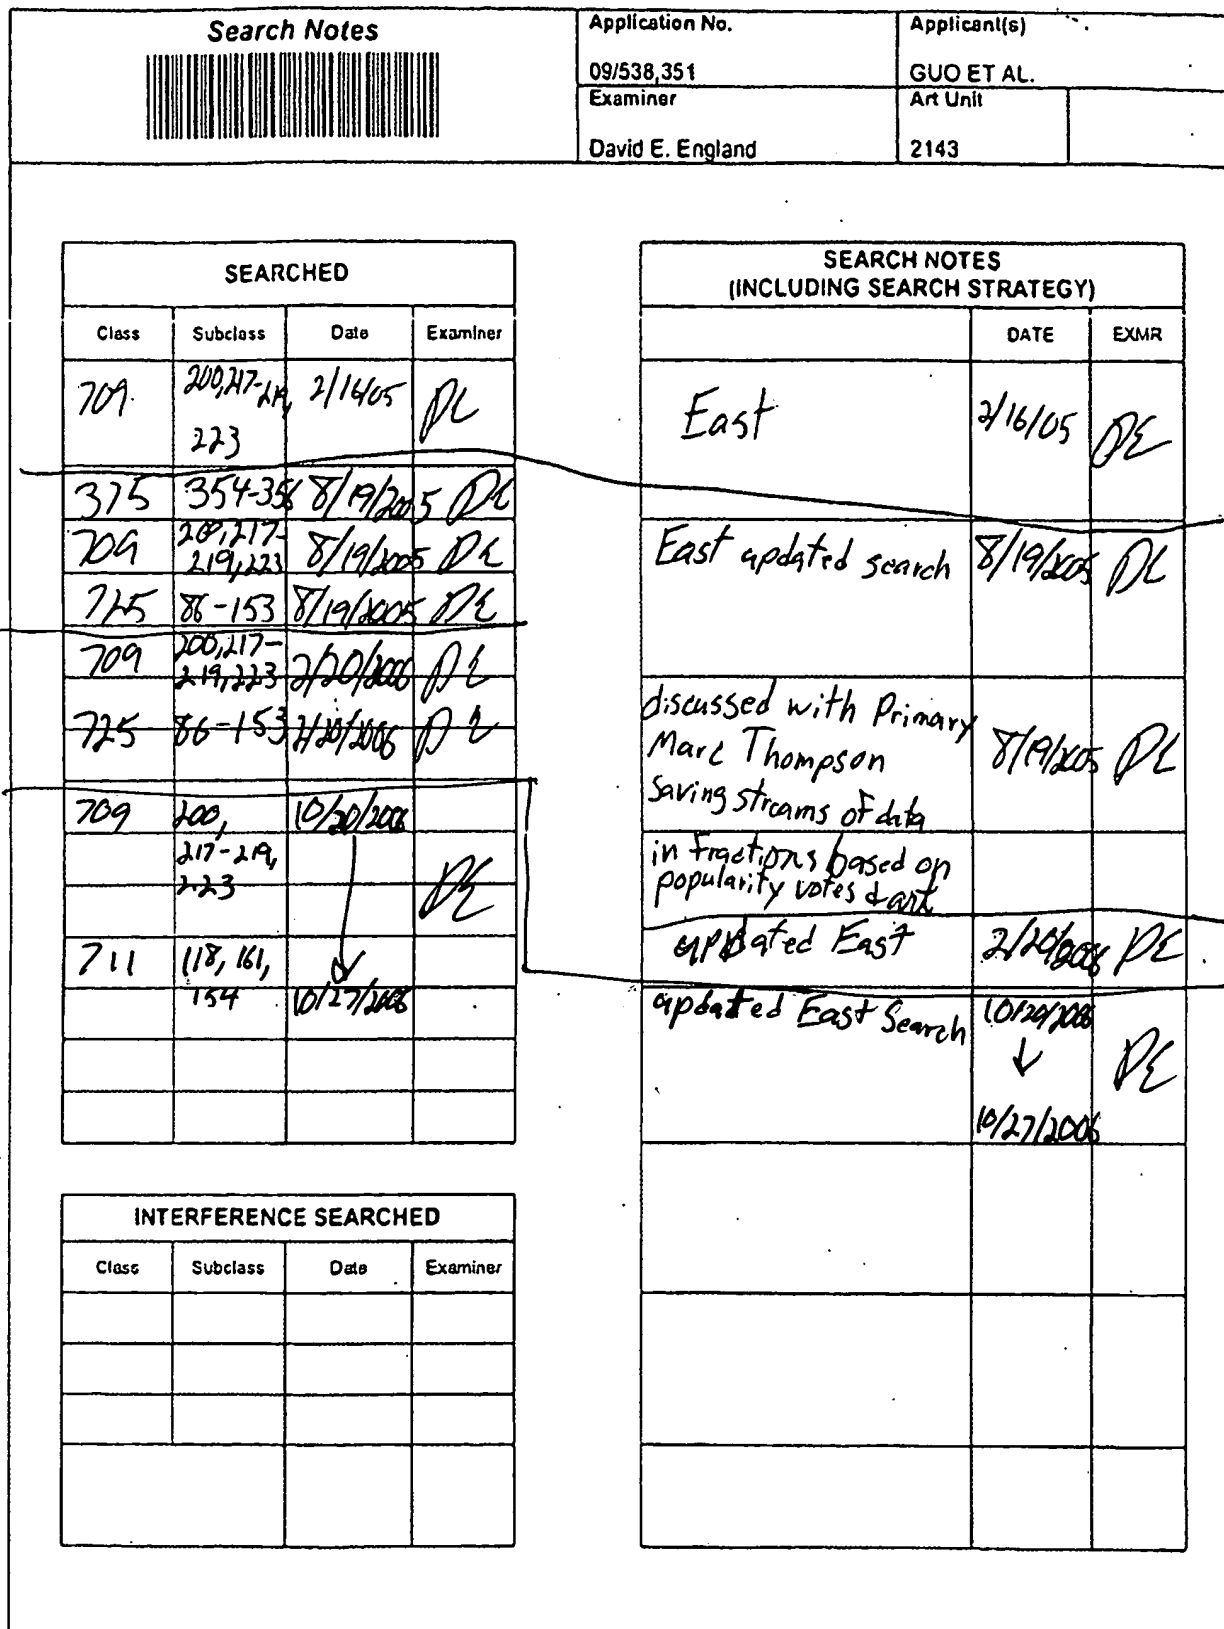 Search Notes
Application No.
09/538,351
Applicant(s)
GUO ET AL.
Examiner
David E. England
Art Unit
2143
SEARCHED
Class Subclass Date Examiner
709 200,217-219, 2/16/05 DE
223
375 354-356 8/19/2005 DE
709 217-
219,223 8/19/2005 DE
725 86-153 8/19/2005 DE
709 200,217-
219,223 2/20/2006 DE
725 86-153 2/20/2006 DE
709 200, 10/20/2006
217-219,
223 DE
711 118, 161,
154 10/27/2006
INTERFERENCE SEARCHED
Class Subclass Date Examiner
SEARCH NOTES
(INCLUDING SEARCH STRATEGY)
DATE EXMR
East 2/16/05 DE
East updated search 8/19/2005 DE
discussed with Primary
Marc Thompson 8/19/2005 DE
saving streams of data
in fractions based on
popularity votes & art
updated East 2/20/2006 DE
updated East Search 10/20/2006
DE
10/27/2006